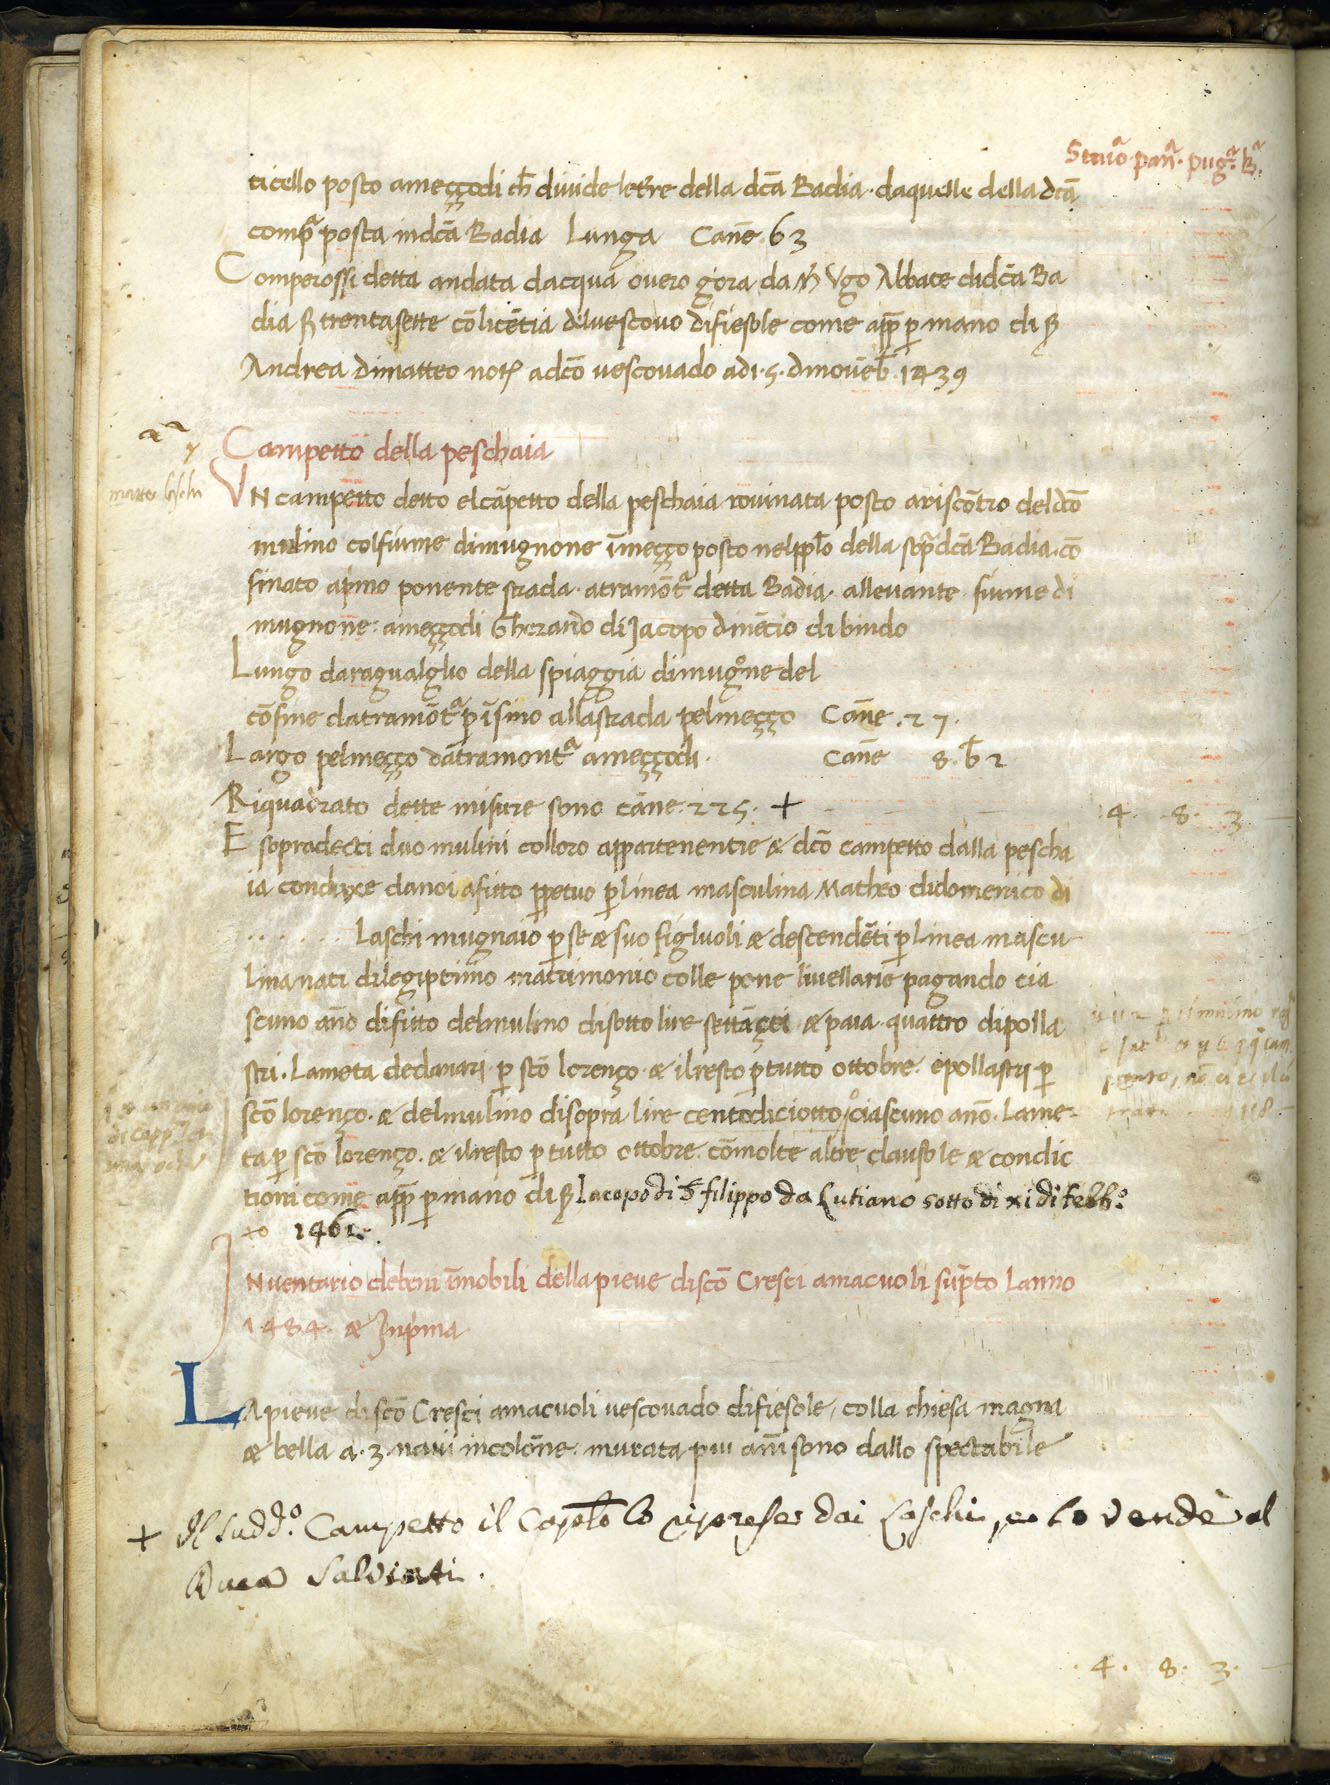 Staiᵃ panᵃ. pugᵃ. bᵃ.
ticello posto ameççodi ch̄ diuide leťre della dc̄a Badia. daquelle della dc̄a
comp̄a posta indc̄a Badia Lunga Cañe. 63
Comperossi detta andata dacqua ouero gora da Ugo Abbate didc̄a Ba
dia trentasette cō licētia delvescouo difiesole come app̄ p̄ mano di
Andrea dimatteo not adc̄o uescouado adi. 5. dinouēb̄. 1439
Campetto della peschaia
UN campetto detto elcāpetto della peschaia rouinata posto ariscōtro deldc̄o
mulino colfiume dimugnone īmeçço posto nelpp̄lo della sop̄dc̄a Badia. cō
finato ap̄imo ponente strada. atramōtᵃ detta Badia. alleuante fiume di
mugnone. ameççodi Gherardo di Jacopo dinēcio di bindo
Lungo daragualglio della spiaggia dimugᵒne del
cōfine datramōtᵃ p̄ īsino allastrada pelmeçço Cañe. 27.
Largo pelmeçço datramontᵃ ameççodi. Cañe 8. b̄ 2
Riquadrato dette misure sono cañe. 225. + 4. 8. 3
E sopradecti duo mulini colloro appartenentie & dc̄o campetto dalla pescha
ia conduxe danoi afitto pp̄etuo p̄ linea masculina Matheo didomenico di
. . . . . . Laschi mugnaio p̄ se & suo figluoli & descendēti p̄ linea mascu
lina nati dilegiptimo matrimonio colle pene liuellarie pagando cia
scuno año difitto delmulino disotto lire settāçei & paia. quattro dipolla
stri. Lameta dedanari p̄ sc̄o lorenço. & ilresto p̄ tutto ottobre. epollastri p̄
sc̄o lorenço. & delmulino disopra lire centodiciotto ciascuno año. Lame
ta p̄ sc̄o lorenço. & ilresto p̄ tutto ottobre. cōmolte altre clausole & condic
tioni come app̄ p̄ mano di Iacopo di filippo da Lutiano sotto di xi di febbᵒ.
1461.
INuentario debeni īmobili della pieue disc̄o Cresci amacuoli sup̄to Lanno
1484. & Inp̄ima
LA pieue disc̄o Cresci amacuoli uescouado difiesole, colla chiesa magna
& bella a. 3. naui incoloñe. murata piu añi sono dallo spectabile
+ Il sudd.ᵒ Campetto il Capᵒlo lo riprese dai Laschi, e lo vendè al
Duca Salviati.
. 4. 8. 3.